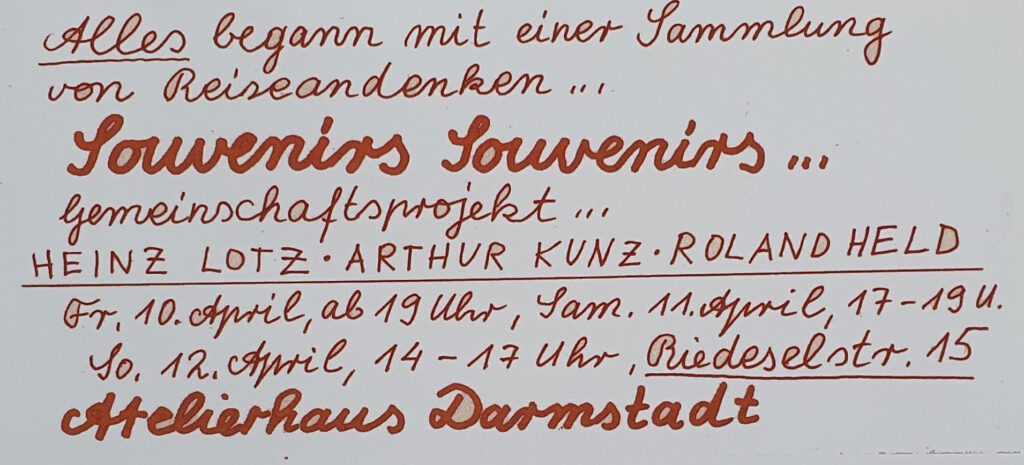 Alles begann mit einer Sammlung
von Reiseandenken ...
Souvenirs Souvenirs ...
Gemeinschaftsprojekt ...
HEINZ LOTZ · ARTHUR KUNZ · ROLAND HELD
Fr. 10. April, ab 19 Uhr, Sam. 11. April, 17-19 U.
So. 12. April, 14-17 Uhr, Riedeselstr. 15
Atelierhaus Darmstadt